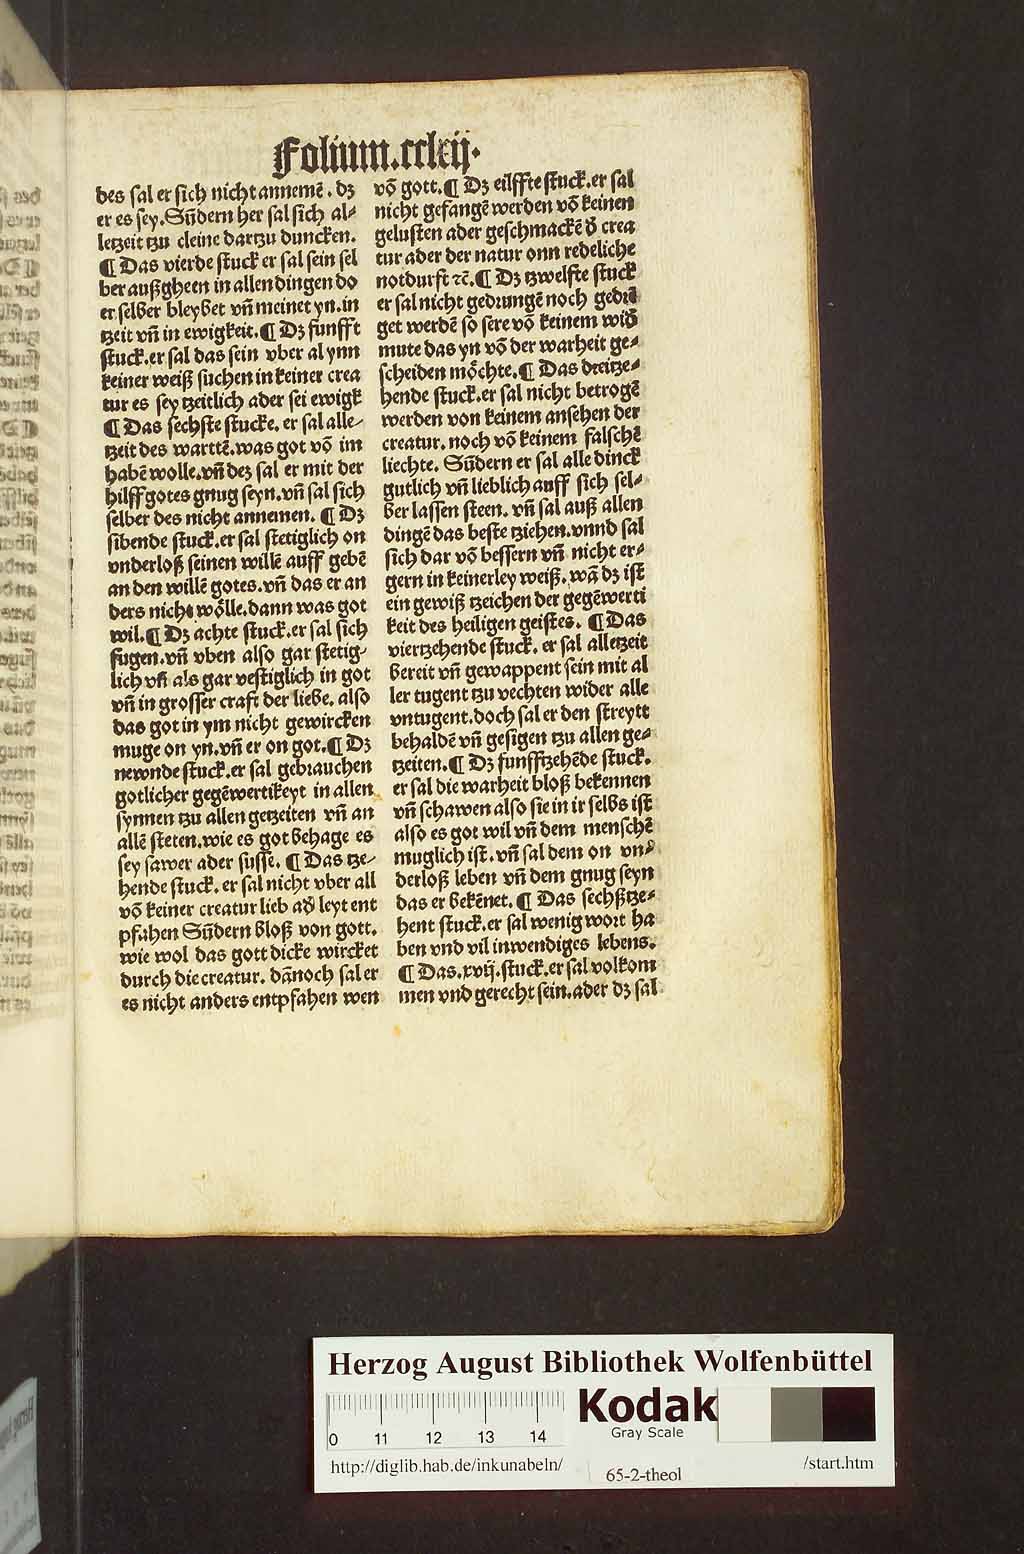 Folium.cclxij.
des sal er sich nicht annemē. dꝫ
er es sey. Sūdern her sal sich al⸗
letzeit tzu cleine dartzu duncken.
¶ Das vierde stuck er sal sein sel
ber außgheen in allen dingen do
er selber bleybet vn̄ meinet yn. in
tzeit vn̄ in ewigkeit. ¶ Dꝫ funfft
stuck. er sal das sein vber al ynn
keiner weiß suchen in keiner crea
tur es sey tzeitlich ader sei ewigk
¶ Das sechste stucke. er sal alle⸗
tzeit des warttē. was got vō im
habē wolle. vn̄ deꝫ sal er mit der
hilff gotes gnug seyn. vn̄ sal sich
selber des nicht annemen. ¶ Dꝫ
sibende stuck. er sal stetiglich on
vnderloß seinen willē auff gebē
an den willē gotes. vn̄ das er an
ders nicht wölle. dann was got
wil. ¶ Dꝫ achte stuck. er sal sich
fugen. vn̄ vben also gar stetig⸗
lich vn̄ als gar vestiglich in got
vn̄ in grosser craft der liebe. also
das got in ym nicht gewircken
muge on yn. vn̄ er on got. ¶ Dꝫ
newnde stuck. er sal gebrauchen
gotlicher gegēwertikeyt in allen
synnen tzu allen getzeiten vn̄ an
allē steten. wie es got behage es
sey sawer ader susse. ¶ Das tze⸗
hende stuck. er sal nicht vber all
vō keiner creatur lieb ad̄ leyt ent
pfahen Sūdern bloß von gott.
wie wol das gott dicke wircket
durch die creatur. dānoch sal er
es nicht anders entpfahen wen
vō gott. ¶ Dꝫ eilffte stuck. er sal
nicht gefangē werden vō keinen
gelusten ader geschmackē d̄ crea
tur ader der natur onn redeliche
notdurft ⁊c̄. ¶ Dꝫ tzwelfte stuck
er sal nicht gedrungē noch gedrā
get werdē so sere vō keinem wid̄
mute das yn vō der warheit ge⸗
scheiden möchte. ¶ Das dreitze⸗
hende stuck. er sal nicht betrogē
werden von keinem ansehen der
creatur. noch vō keinem falschē
liechte. Sūdern er sal alle dinck
gutlich vn̄ lieblich auff sich sel⸗
ber lassen steen. vn̄ sal auß allen
dingē das beste tziehen. vnnd sal
sich dar vō bessern vn̄ nicht er⸗
gern in keinerley weiß. wā dꝫ ist
ein gewiß tzeichen der gegēwerti
keit des heiligen geistes. ¶ Das
viertzehende stuck. er sal alletzeit
bereit vn̄ gewappent sein mit al
ler tugent tzu vechten wider alle
vntugent. doch sal er den streytt
behaldē vn̄ gesigen tzu allen ge⸗
tzeiten. ¶ Dꝫ funfftzehēde stuck.
er sal die warheit bloß bekennen
vn̄ schawen also sie in ir selbs ist
also es got wil vn̄ dem menschē
muglich ist. vn̄ sal dem on vn⸗
derloß leben vn̄ dem gnug seyn
das er bekēnet. ¶ Das sechßtze⸗
hent stuck. er sal wenig wort ha
ben vnd vil inwendiges lebens.
¶ Das. xvij. stuck. er sal volkom
men vnd gerecht sein. ader dꝫ sal
Herzog August Bibliothek Wolfenbüttel
0 11 12 13 14
Kodak
Gray Scale
http://diglib.hab.de/inkunabeln/
65-2-theol
/start.htm